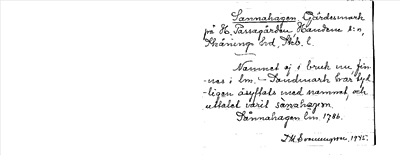 Sannahagen Gärdesmark
på N. Tassagården Handene s:n,
Skånings hd, Skb. l.
Namnet ej i bruk nu, fin-
nes i lm. – Sandmark har tyd-
ligen åsyftats med namnet, och
uttalet varit sànahagen.
Sannahagen lm 1786.
1945.